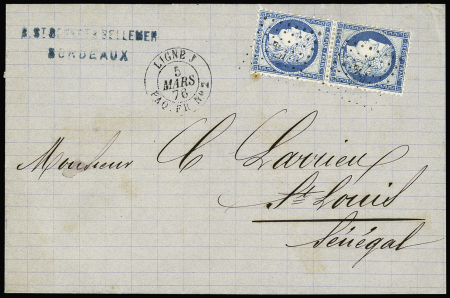 BORDEAUX
LIGNE J
5
MARS
76
PAQ. FR. No 2
Monsieur C Larrieu
St Louis
Sénégal